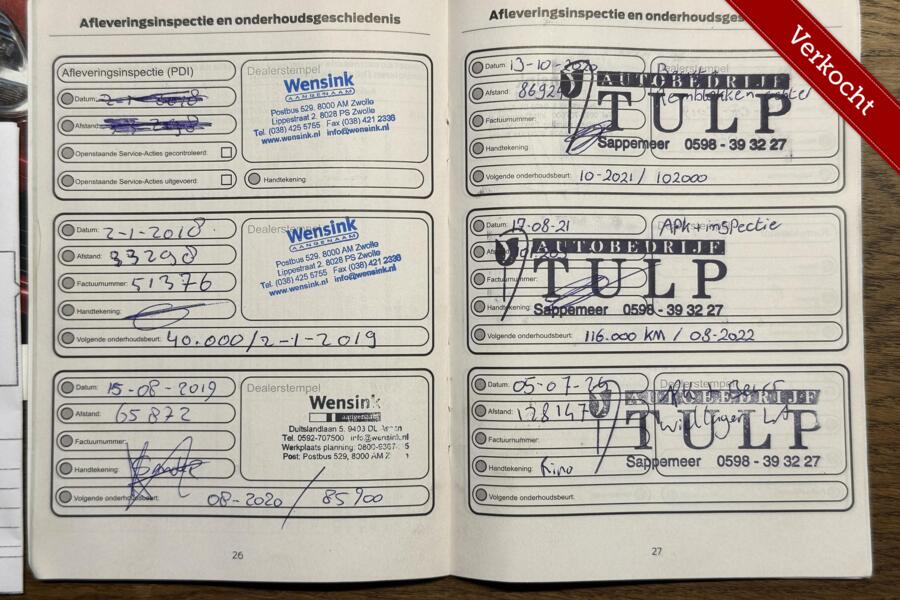 Afleveringsinspectie en onderhoudsgeschiedenis
Afleveringsinspectie (PDI)
Datum: 2-1-2018
Afstand:
Openstaande Service-Acties gecontroleerd:
Openstaande Service-Acties uitgevoerd:
Dealerstempel
Wensink
AANGENAAM
Postbus 529, 8000 AM Zwolle
Lippestraat 2, 8028 PS Zwolle
Tel. (038) 425 5755 Fax (038) 421 2336
www.wensink.nl info@wensink.nl
Handtekening:
Datum: 2-1-2018
Afstand: 33298
Factuurnummer: 51376
Handtekening:
Volgende onderhoudsbeurt: 40.000/2-1-2019
Dealerstempel
Wensink
AANGENAAM
Postbus 529, 8000 AM Zwolle
Lippestraat 2, 8028 PS Zwolle
Tel. (038) 425 5755 Fax (038) 421 2336
www.wensink.nl info@wensink.nl
Datum: 15-08-2019
Afstand: 65872
Factuurnummer:
Handtekening:
Volgende onderhoudsbeurt: 08-2020 / 85900
Dealerstempel
Wensink
aangenaam
Duitslandlaan 5, 9403 DL
Tel. 0592-707500 info@wensink.nl
Werkplaats planning:
Post: Postbus 529, 8000 AM Z
26
Afleveringsinspectie en onderhoudsges
Verkocht
Datum: 13-10-2020
Afstand: 8692
Factuurnummer:
Handtekening:
Dealerstempel
AUTOBEDRIJF
TULP
Sappemeer 0598 - 39 32 27
Volgende onderhoudsbeurt: 10-2021 / 102000
Datum: 17-08-21
Apk + inspectie
AUTOBEDRIJF
TULP
Factuurnummer:
Handtekening:
Sappemeer 0598 - 39 32 27
Volgende onderhoudsbeurt: 116.000 KM / 08-2022
Datum:
Afstand: 138147
Factuurnummer:
Handtekening:
Dealerstempel
AUTOBEDRIJF
TULP
Sappemeer 0598 - 39 32 27
Volgende onderhoudsbeurt:
27